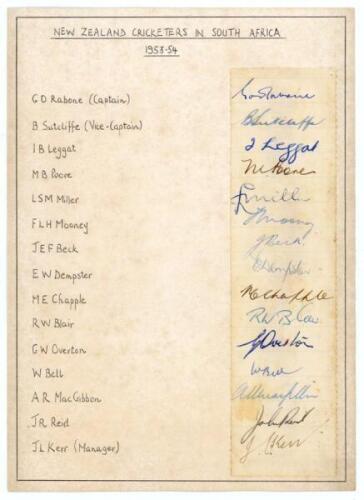 NEW ZEALAND CRICKETERS IN SOUTH AFRICA
1953-54
G D Rabone (Captain)
B Sutcliffe (Vice-Captain) B Sutcliffe
I B Leggat I Leggat
M B Poore M Poore
L S M Miller L Miller
F L H Mooney F Mooney
J E F Beck J Beck
E W Dempster E Dempster
M E Chapple M Chapple
R W Blair R W Blair
G W Overton G Overton
W Bell W Bell
A R MacGibbon
J R Reid John Reid
J L Kerr (Manager) J Kerr